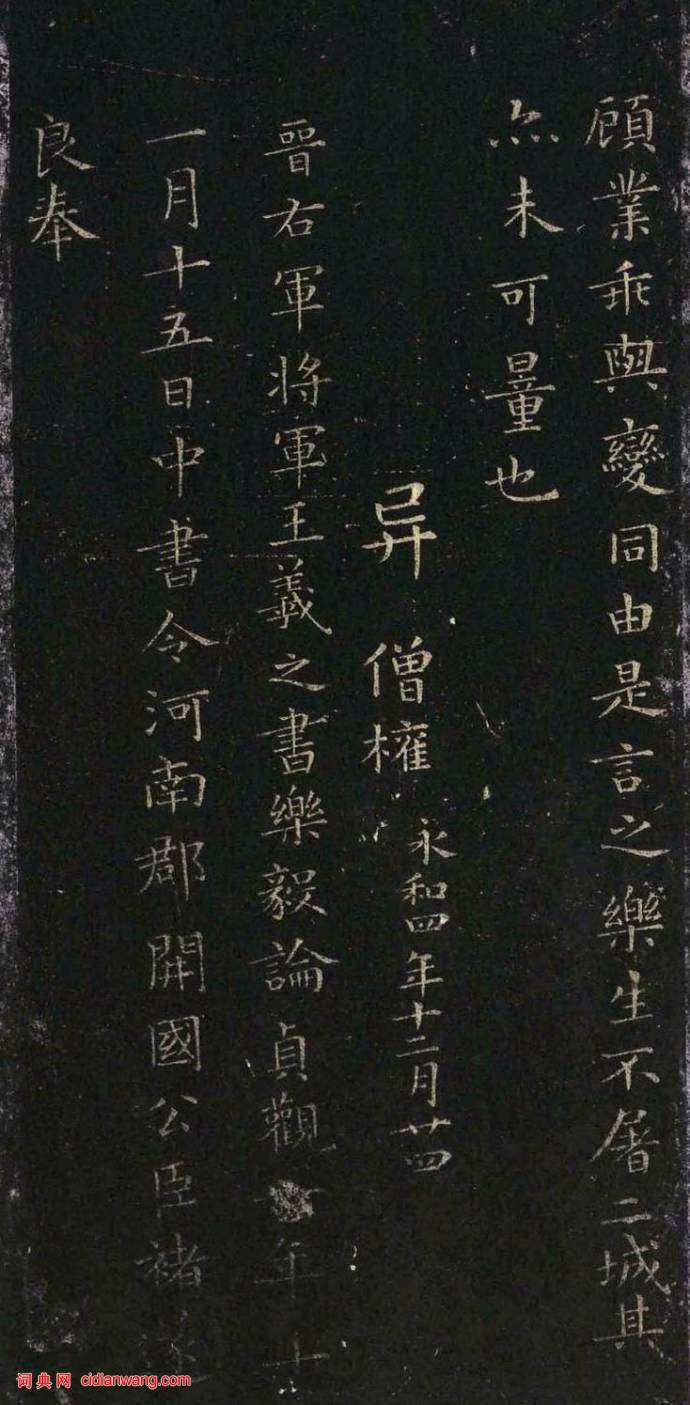 顧業乖與變同由是言之樂生不屠二城其
亦未可量也
异 僧權
永和四年十二月廿四
晉右軍將軍王羲之書樂毅論貞觀年十
一月十五日中書令河南郡開國公臣褚遂
良奉
词典网 cidianwang.com